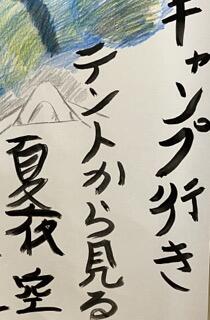 キャンプ行き
テントから見る
夏夜空